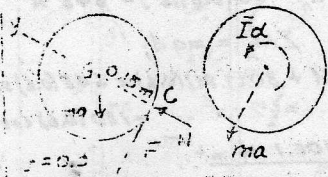 y
G 0.15m
C
mg
F
N
Īα
ma